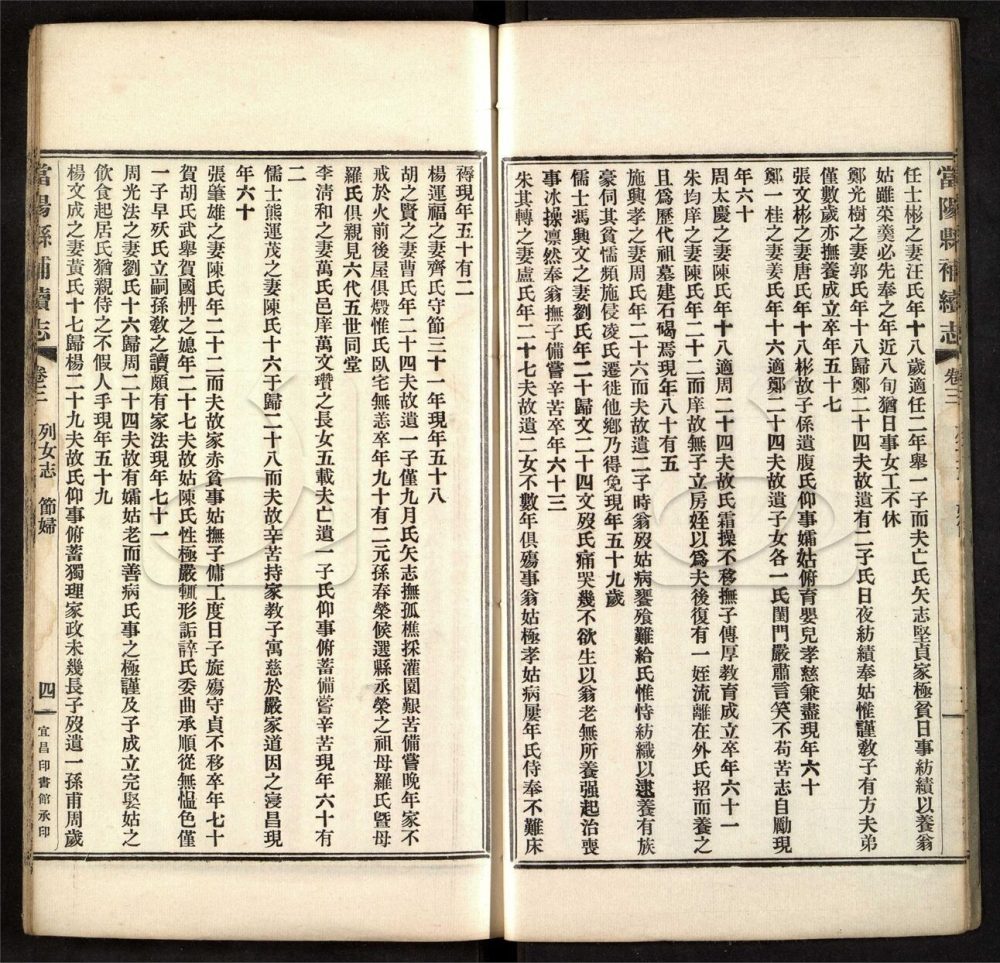 當陽縣補續志 卷三
任士彬之妻汪氏年十八歲適任二年舉一子而夫亡氏矢志堅貞家極貧日事紡績以養翁
姑雖菜羹必先奉之年近八旬猶日事女工不休
鄭光樹之妻郭氏年十八歸鄭二十四夫故遺有二子氏日夜紡績奉姑惟謹敎子有方夫弟
僅數歲亦撫養成立卒年五十七
張文彬之妻唐氏年十八彬故子係遺腹氏仰事孀姑俯育嬰兒孝慈兼盡現年六十
鄭一桂之妻姜氏年十六適鄭二十四夫故遺子女各一氏閨門嚴肅言笑不苟苦志自勵現
年六十
周太慶之妻陳氏年十八適周二十四夫故氏霜操不移撫子傳厚敎育成立卒年六十一
朱均庠之妻陳氏年二十二而庠故無子立房姪以爲夫後復有一姪流離在外氏招而養之
且爲歷代祖墓建石碣焉現年八十有五
施興孝之妻周氏年二十六而夫故遺二子時翁歿姑病饔飧難給氏惟恃紡織以逮養有族
豪伺其貧懦頻施侵凌氏遷徙他鄉乃得免現年五十九歲
儒士馮興文之妻劉氏年二十歸文二十四文歿氏痛哭幾不欲生以翁老無所養强起治喪
事冰操凛然奉翁撫子備嘗辛苦卒年六十三
朱其轉之妻盧氏年二十七夫故遺二女不數年俱殤事翁姑極孝姑病屢年氏侍奉不難床
蓐現年五十有二
楊運福之妻齊氏守節三十一年現年五十八
胡之賢之妻曹氏年二十四夫故遺一子僅九月氏矢志撫孤樵採灌園艱苦備嘗晚年家不
戒於火前後屋俱燬惟氏臥宅無恙卒年九十有二元孫春榮候選縣丞榮之祖母羅氏曁母
羅氏俱親見六代五世同堂
李淸和之妻萬氏邑庠萬文瓚之長女五載夫亡遺一子氏仰事俯蓄備嘗辛苦現年六十有
二
儒士熊運茂之妻陳氏十六于歸二十八而夫故辛苦持家教子寓慈於嚴家道因之寖昌現
年六十
張肇雄之妻陳氏年二十二而夫故家赤貧事姑撫子傭工度日子旋殤守貞不移卒年七十
賀胡氏武舉賀國枬之媳年二十七夫故姑陳氏性極嚴輒形詬誶氏委曲承順從無慍色僅
一子早殀氏立嗣孫敎之讀頗有家法現年七十一
周光法之妻劉氏十六歸周二十四夫故有孀姑老而善病氏事之極謹及子成立完娶姑之
飲食起居氏猶親侍之不假人手現年五十九
楊文成之妻黃氏十七歸楊二十九夫故氏仰事俯蓄獨理家政未幾長子歿遺一孫甫周歲
當陽縣補續志 卷三 列女志 節婦 四 宜昌印書館承印